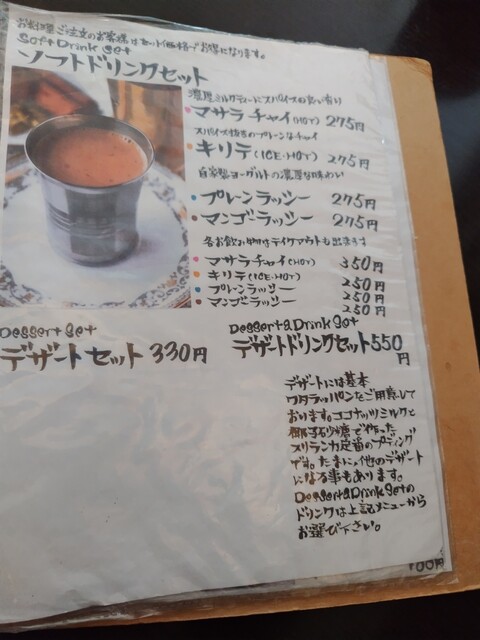 お料理ご注文のお客様はセット価格でお得になります。
Soft Drink Set
ソフトドリンクセット
濃厚ミルクティーにスパイスの良い香り
マサラチャイ(HOT) 275円
スパイス抜きのプレーンなチャイ
キリテ(ICE・HOT) 275円
自家製ヨーグルトの濃厚な味わい
プレーンラッシー 275円
マンゴーラッシー 275円
各お飲み物はテイクアウトも出来ます
マサラチャイ(HOT) 350円
キリテ(ICE・HOT) 250円
プレーンラッシー 250円
マンゴーラッシー 250円
Dessert Set
デザートセット 330円
Dessert&Drink Set
デザートドリンクセット550円
デザートには基本
ワタラッパンをご用意して
おります。ココナッツミルクと
椰子砂糖で作った
スリランカ定番のプディング
です。たまに他のデザート
になる事もあります。
Dessert&Drink Setの
ドリンクは上記メニューから
お選び下さい。